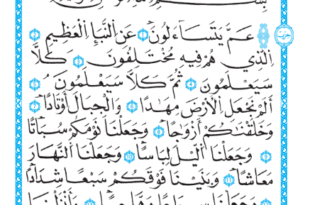 عَمَّ يَتَسَآءَلُونَ ۝ عَنِ ٱلنَّبَإِ ٱلْعَظِيمِ ۝
ٱلَّذِى هُمْ فِيهِ مُخْتَلِفُونَ ۝ كَلَّا
سَيَعْلَمُونَ ۝ ثُمَّ كَلَّا سَيَعْلَمُونَ ۝
أَلَمْ نَجْعَلِ ٱلْأَرْضَ مِهَٰدًا ۝ وَٱلْجِبَالَ أَوْتَادًا ۝
وَخَلَقْنَٰكُمْ أَزْوَٰجًا ۝ وَجَعَلْنَا نَوْمَكُمْ سُبَاتًا
۝ وَجَعَلْنَا ٱلَّيْلَ لِبَاسًا ۝ وَجَعَلْنَا ٱلنَّهَارَ
مَعَاشًا ۝ وَبَنَيْنَا فَوْقَكُمْ سَبْعًا شِدَادًا
۝ وَجَعَلْنَا سِرَاجًا وَهَّاجًا ۝ وَأَنزَلْنَا